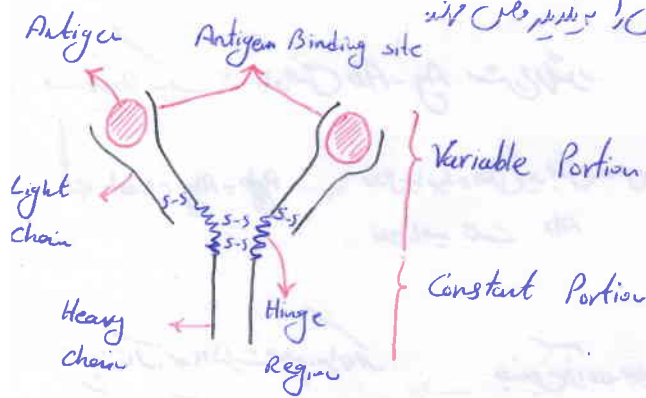 را به یکدیگر وصل میکند
Antigen
Antigen Binding site
Variable Portion
Light
Chain
S-S
S-S
S-S
S-S
Constant Portion
Heavy
Chain
Hinge
Region